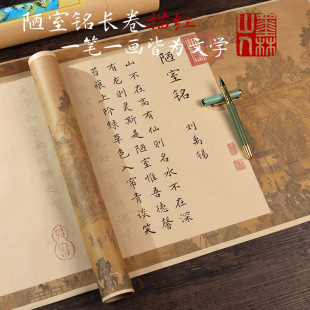 陋室铭长卷描红
一笔一画皆为文学
陋室铭
刘禹锡
山不在高有仙则名水不在深
有龙则灵斯是陋室惟吾德馨
苔痕上阶绿草色入帘青谈笑